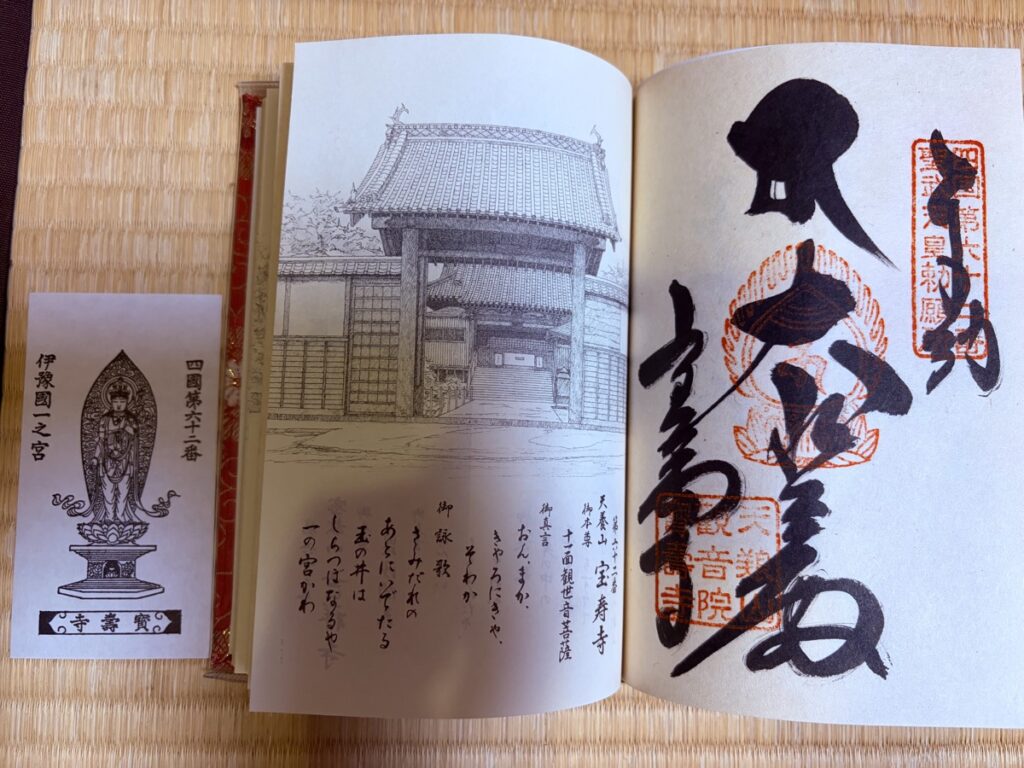 四國第六十二番
伊豫國一之宮
寳壽寺
第六十二番
天養山 宝寿寺
御本尊
十一面観世音菩薩
御真言
おん、まか、
きやろにきや、
そわか
御詠歌
さみだれの
あとにいでたる
玉の井は
しらつぼなるや
一の宮かわ
奉納
四國第六十
聖武天皇勅願
天養山
観音院
壽寺